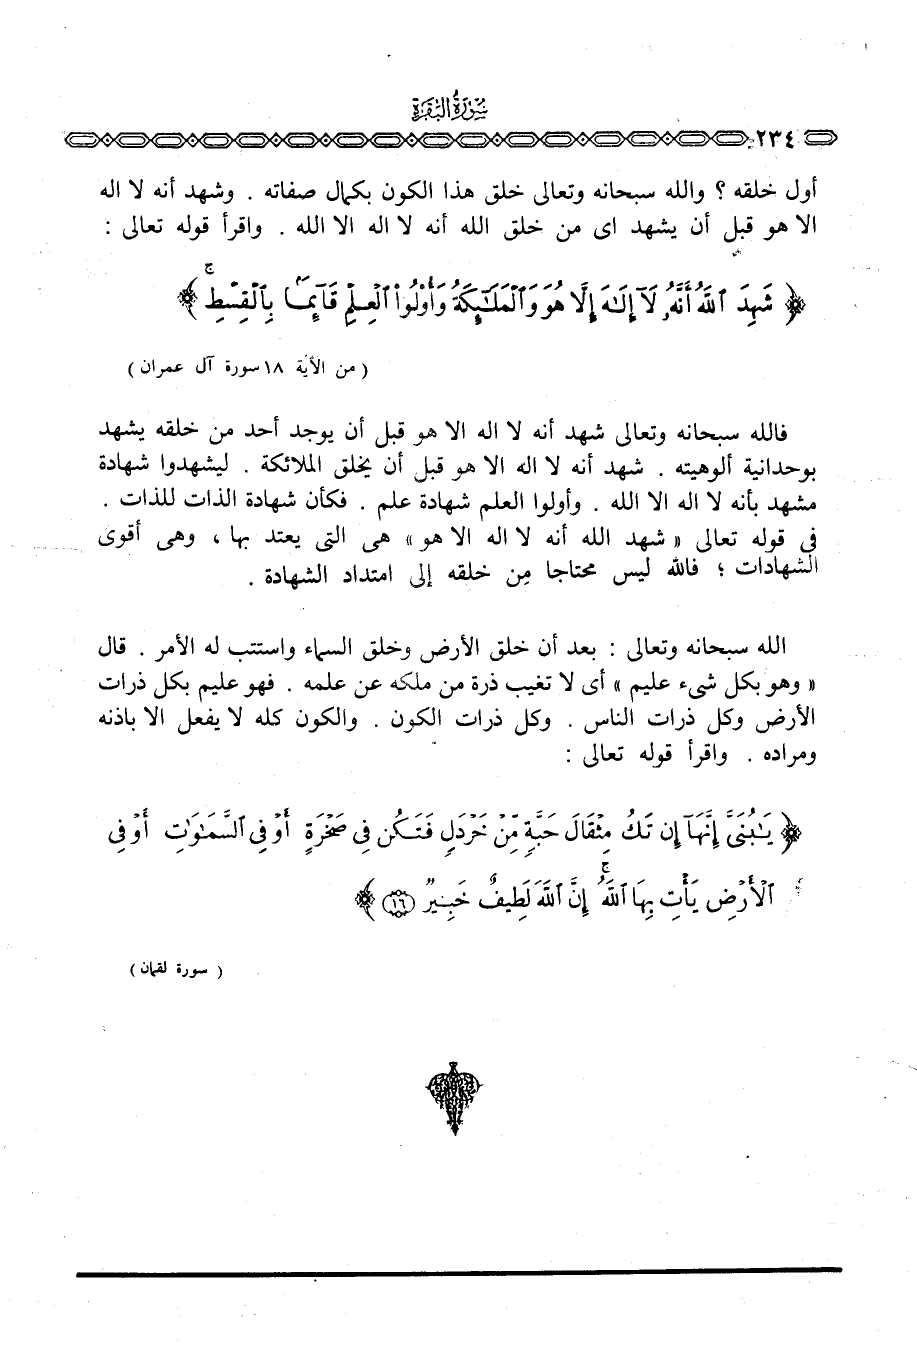 سورة البقرة
٢٣٤
أول خلقه ؟ والله سبحانه وتعالى خلق هذا الكون بكمال صفاته . وشهد أنه لا اله
الا هو قبل أن يشهد اى من خلق الله أنه لا اله الا الله . واقرأ قوله تعالى :
﴿ شَهِدَ ٱللَّهُ أَنَّهُۥ لَآ إِلَٰهَ إِلَّا هُوَ وَٱلْمَلَٰٓئِكَةُ وَأُو۟لُوا۟ ٱلْعِلْمِ قَآئِمًۢا بِٱلْقِسْطِ ۚ ﴾
( من الأية ١٨ سورة آل عمران )
فالله سبحانه وتعالى شهد أنه لا اله الا هو قبل أن يوجد أحد من خلقه يشهد
بوحدانية ألوهيته . شهد أنه لا اله الا هو قبل أن يخلق الملائكة . ليشهدوا شهادة
مشهد بأنه لا اله الا الله . وأولوا العلم شهادة علم . فكأن شهادة الذات للذات .
فى قوله تعالى « شهد الله أنه لا اله الا هو » هى التى يعتد بها ، وهى أقوى
الشهادات ؛ فالله ليس محتاجا مِن خلقه إلى امتداد الشهادة .
الله سبحانه وتعالى : بعد أن خلق الأرض وخلق السماء واستتب له الأمر . قال
« وهو بكل شىء عليم » أى لا تغيب ذرة من ملكه عن علمه . فهو عليم بكل ذرات
الأرض وكل ذرات الناس . وكل ذرات الكون . والكون كله لا يفعل الا باذنه
ومراده . واقرأ قوله تعالى :
﴿ يَٰبُنَىَّ إِنَّهَآ إِن تَكُ مِثْقَالَ حَبَّةٍ مِّنْ خَرْدَلٍ فَتَكُن فِى صَخْرَةٍ أَوْ فِى ٱلسَّمَٰوَٰتِ أَوْ فِى
ٱلْأَرْضِ يَأْتِ بِهَا ٱللَّهُ ۚ إِنَّ ٱللَّهَ لَطِيفٌ خَبِيرٌ ١٦ ﴾
( سورة لقمان )